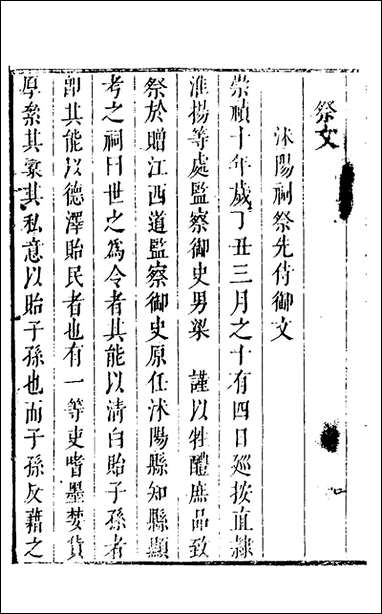 祭文
沭陽祠祭先侍御文
崇禎十年歲丁丑三月之十有四日巡按直隸
淮揚等處監察御史男梁 謹以牲醴庶品致
祭於贈江西道監察御史原任沭陽縣知縣顯
考之祠曰世之為令者其能以清白貽子孫者
卽其能以德澤貽民者也有一等吏嗜墨婪貨
厚絫其橐其私意以貽子孫也而子孫反藉之